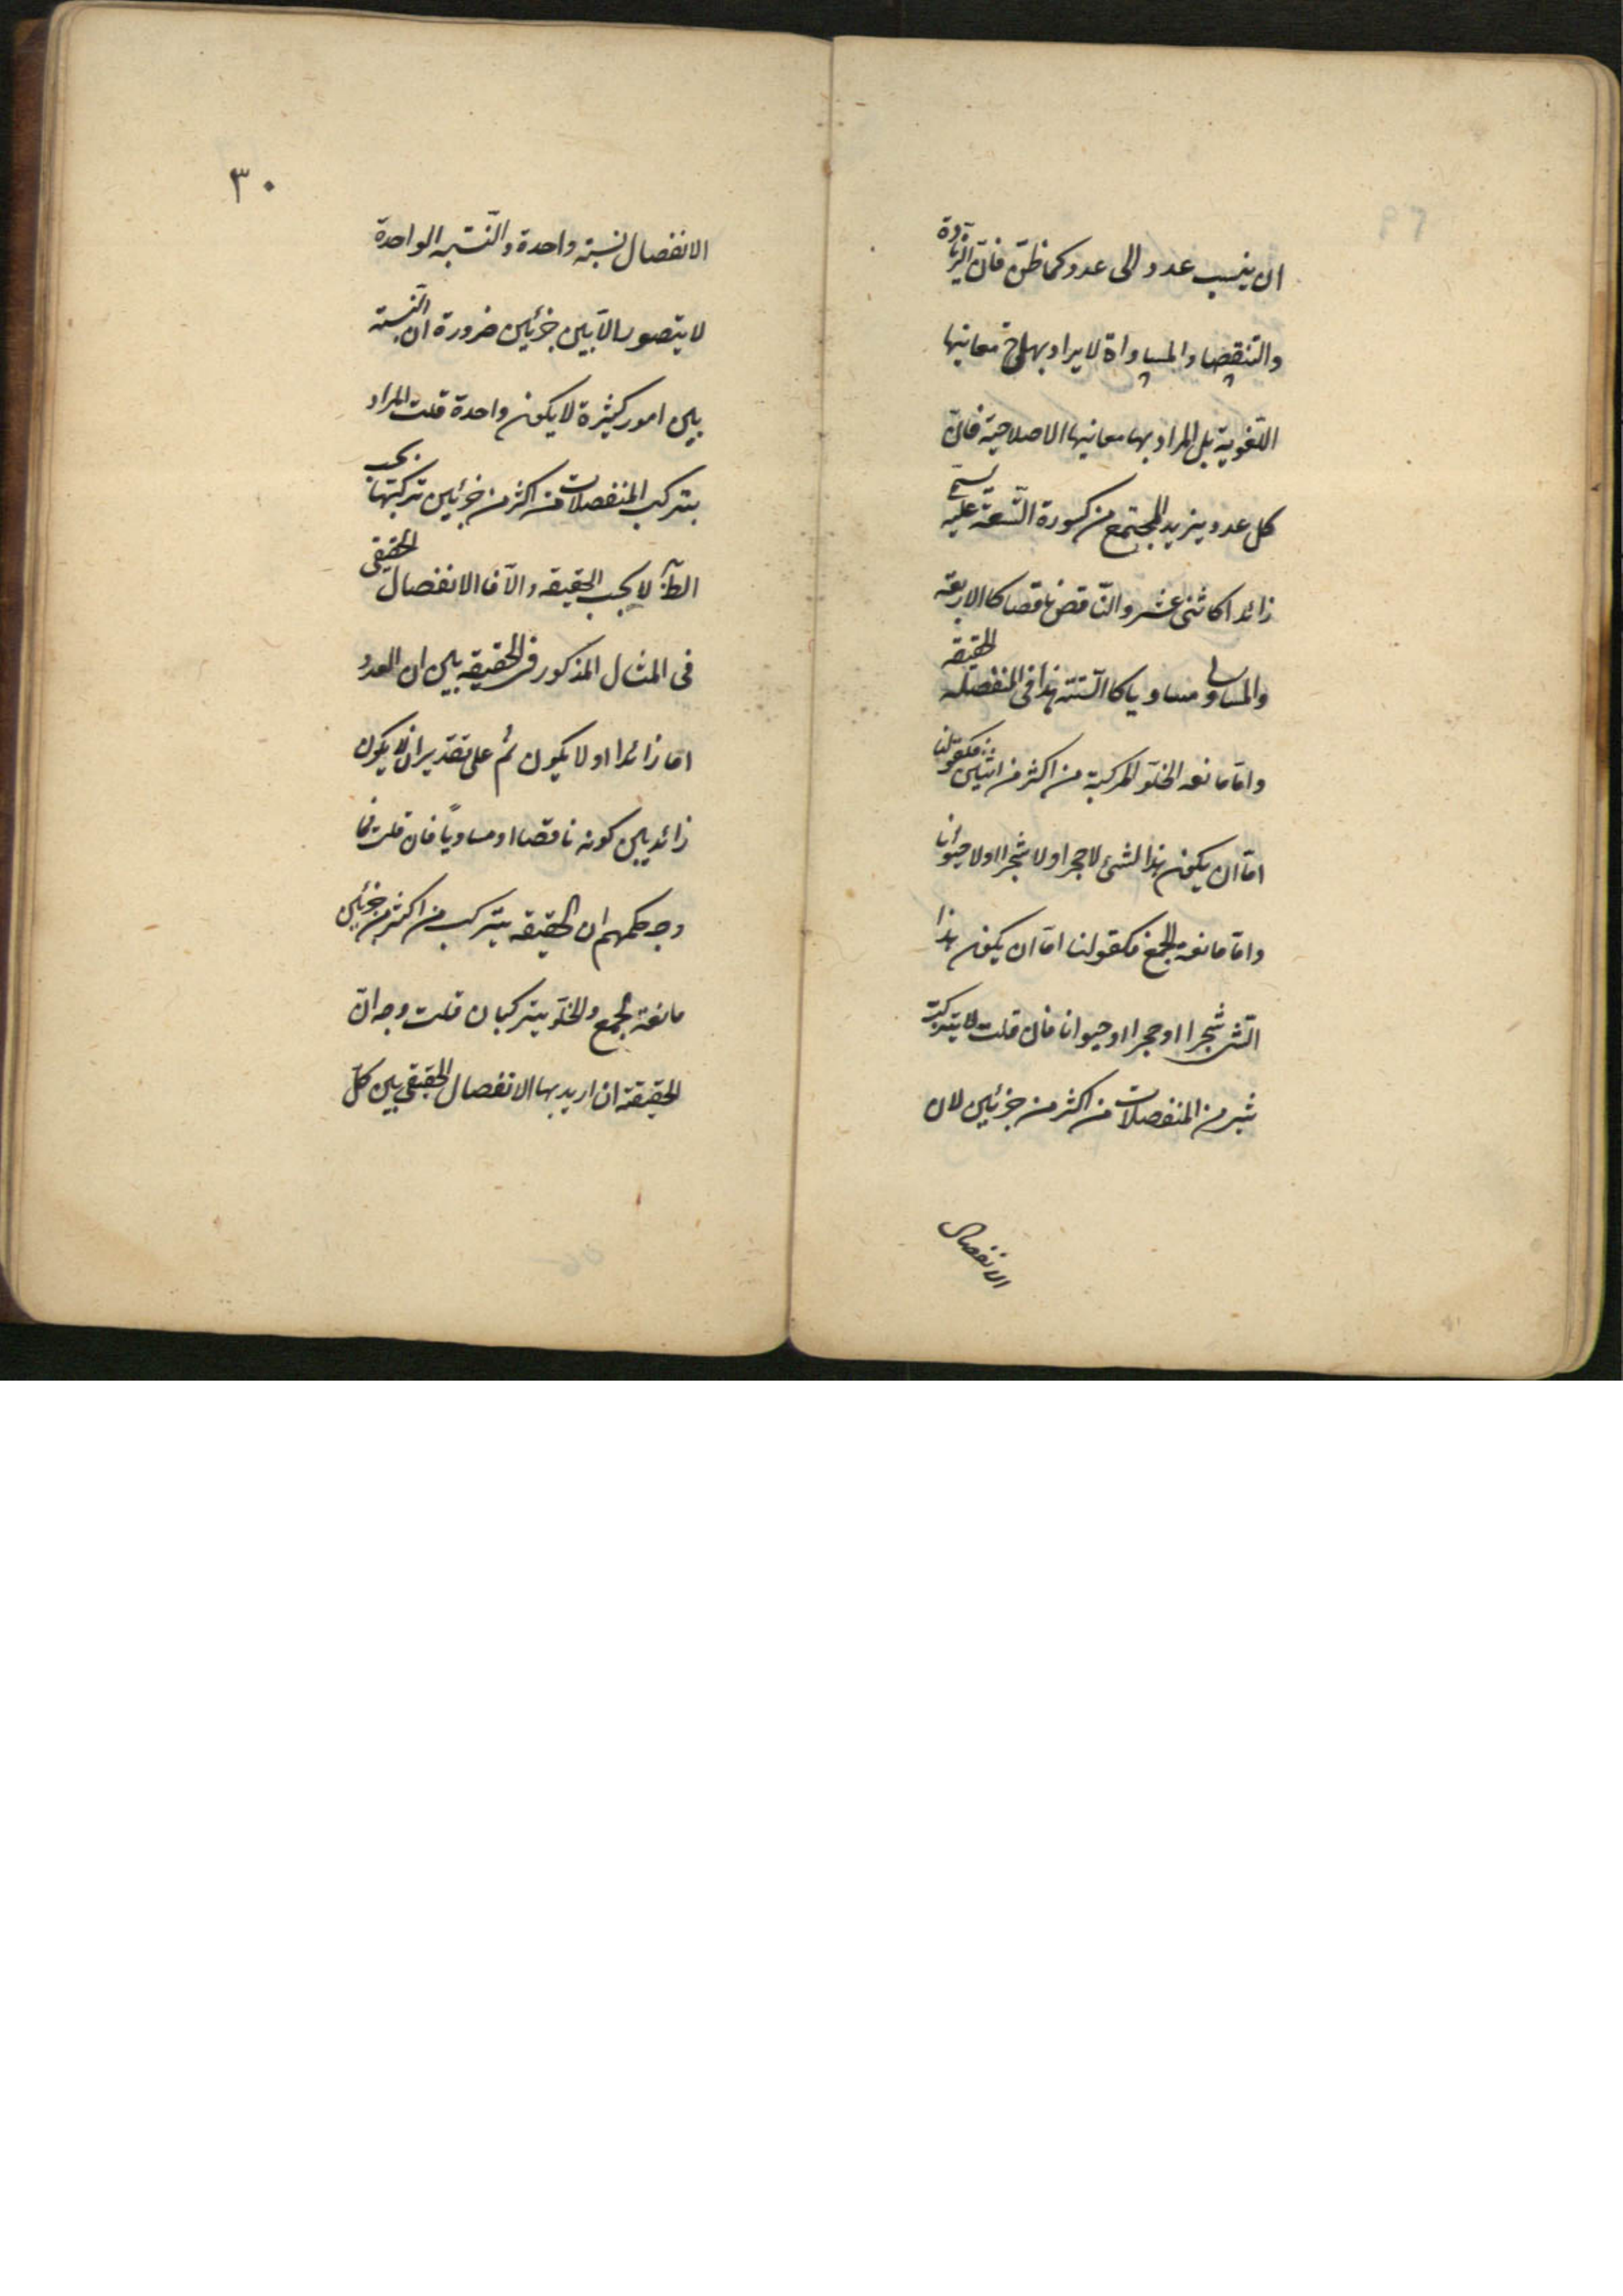 ان ينسب عدد الى عدد كما ظن فان الزيادة
والتنقصا والمساواة لا يراد بها معانيها
اللغوية بل المراد بها معانيها الاصلاحية فان
كل عدد يزيد المجتمع من كسورة التسعة عليه يسمى
زائدا كاثنى عشر والناقص ناقصا كالاربعة
والمساوى مساويا كالستة هذا فى المنفصلة الحقيقه
واما مانعه الخلو المركبة من اكثر من اثنين فكقولنا
اما ان يكون هذا لشئ لا حجرا ولا شجرا اولا حيوانا
واما مانعة الجمع فكقولنا اما ان يكون هذا
الشى شجرا اوحجرا اوحيوانا فان قلت لا يتركب
شئ من المنفصلات من اكثر من جزئين لان
الانفصال
٣٠
الانفصال نسبة واحدة والنسبه الواحدة
لا يتصور الا بين جزئين ضرورة ان النسبة
بين امور كثيرة لا يكون واحدة قلت المراد
بتركب المنفصلات من اكثر من جزئين تركبها بحسب
الظ لا بحسب الحقيقه والا فالانفصال الحقيقى
فى المثال المذكور فى الحقيقه بين ان العدد
اما زائدا اولا يكون ثم على تقدير ان لا يكون
زائد بين كونه ناقصا اومساويا فان قلت فما
وجه حكمهم ان الحقيقه يتركب من اكثر من جزئين
مانعة الجمع والخلو يتركبان قلت وجه ان
الحقيقة ان اريد بها الانفصال الحقيقى بين كل